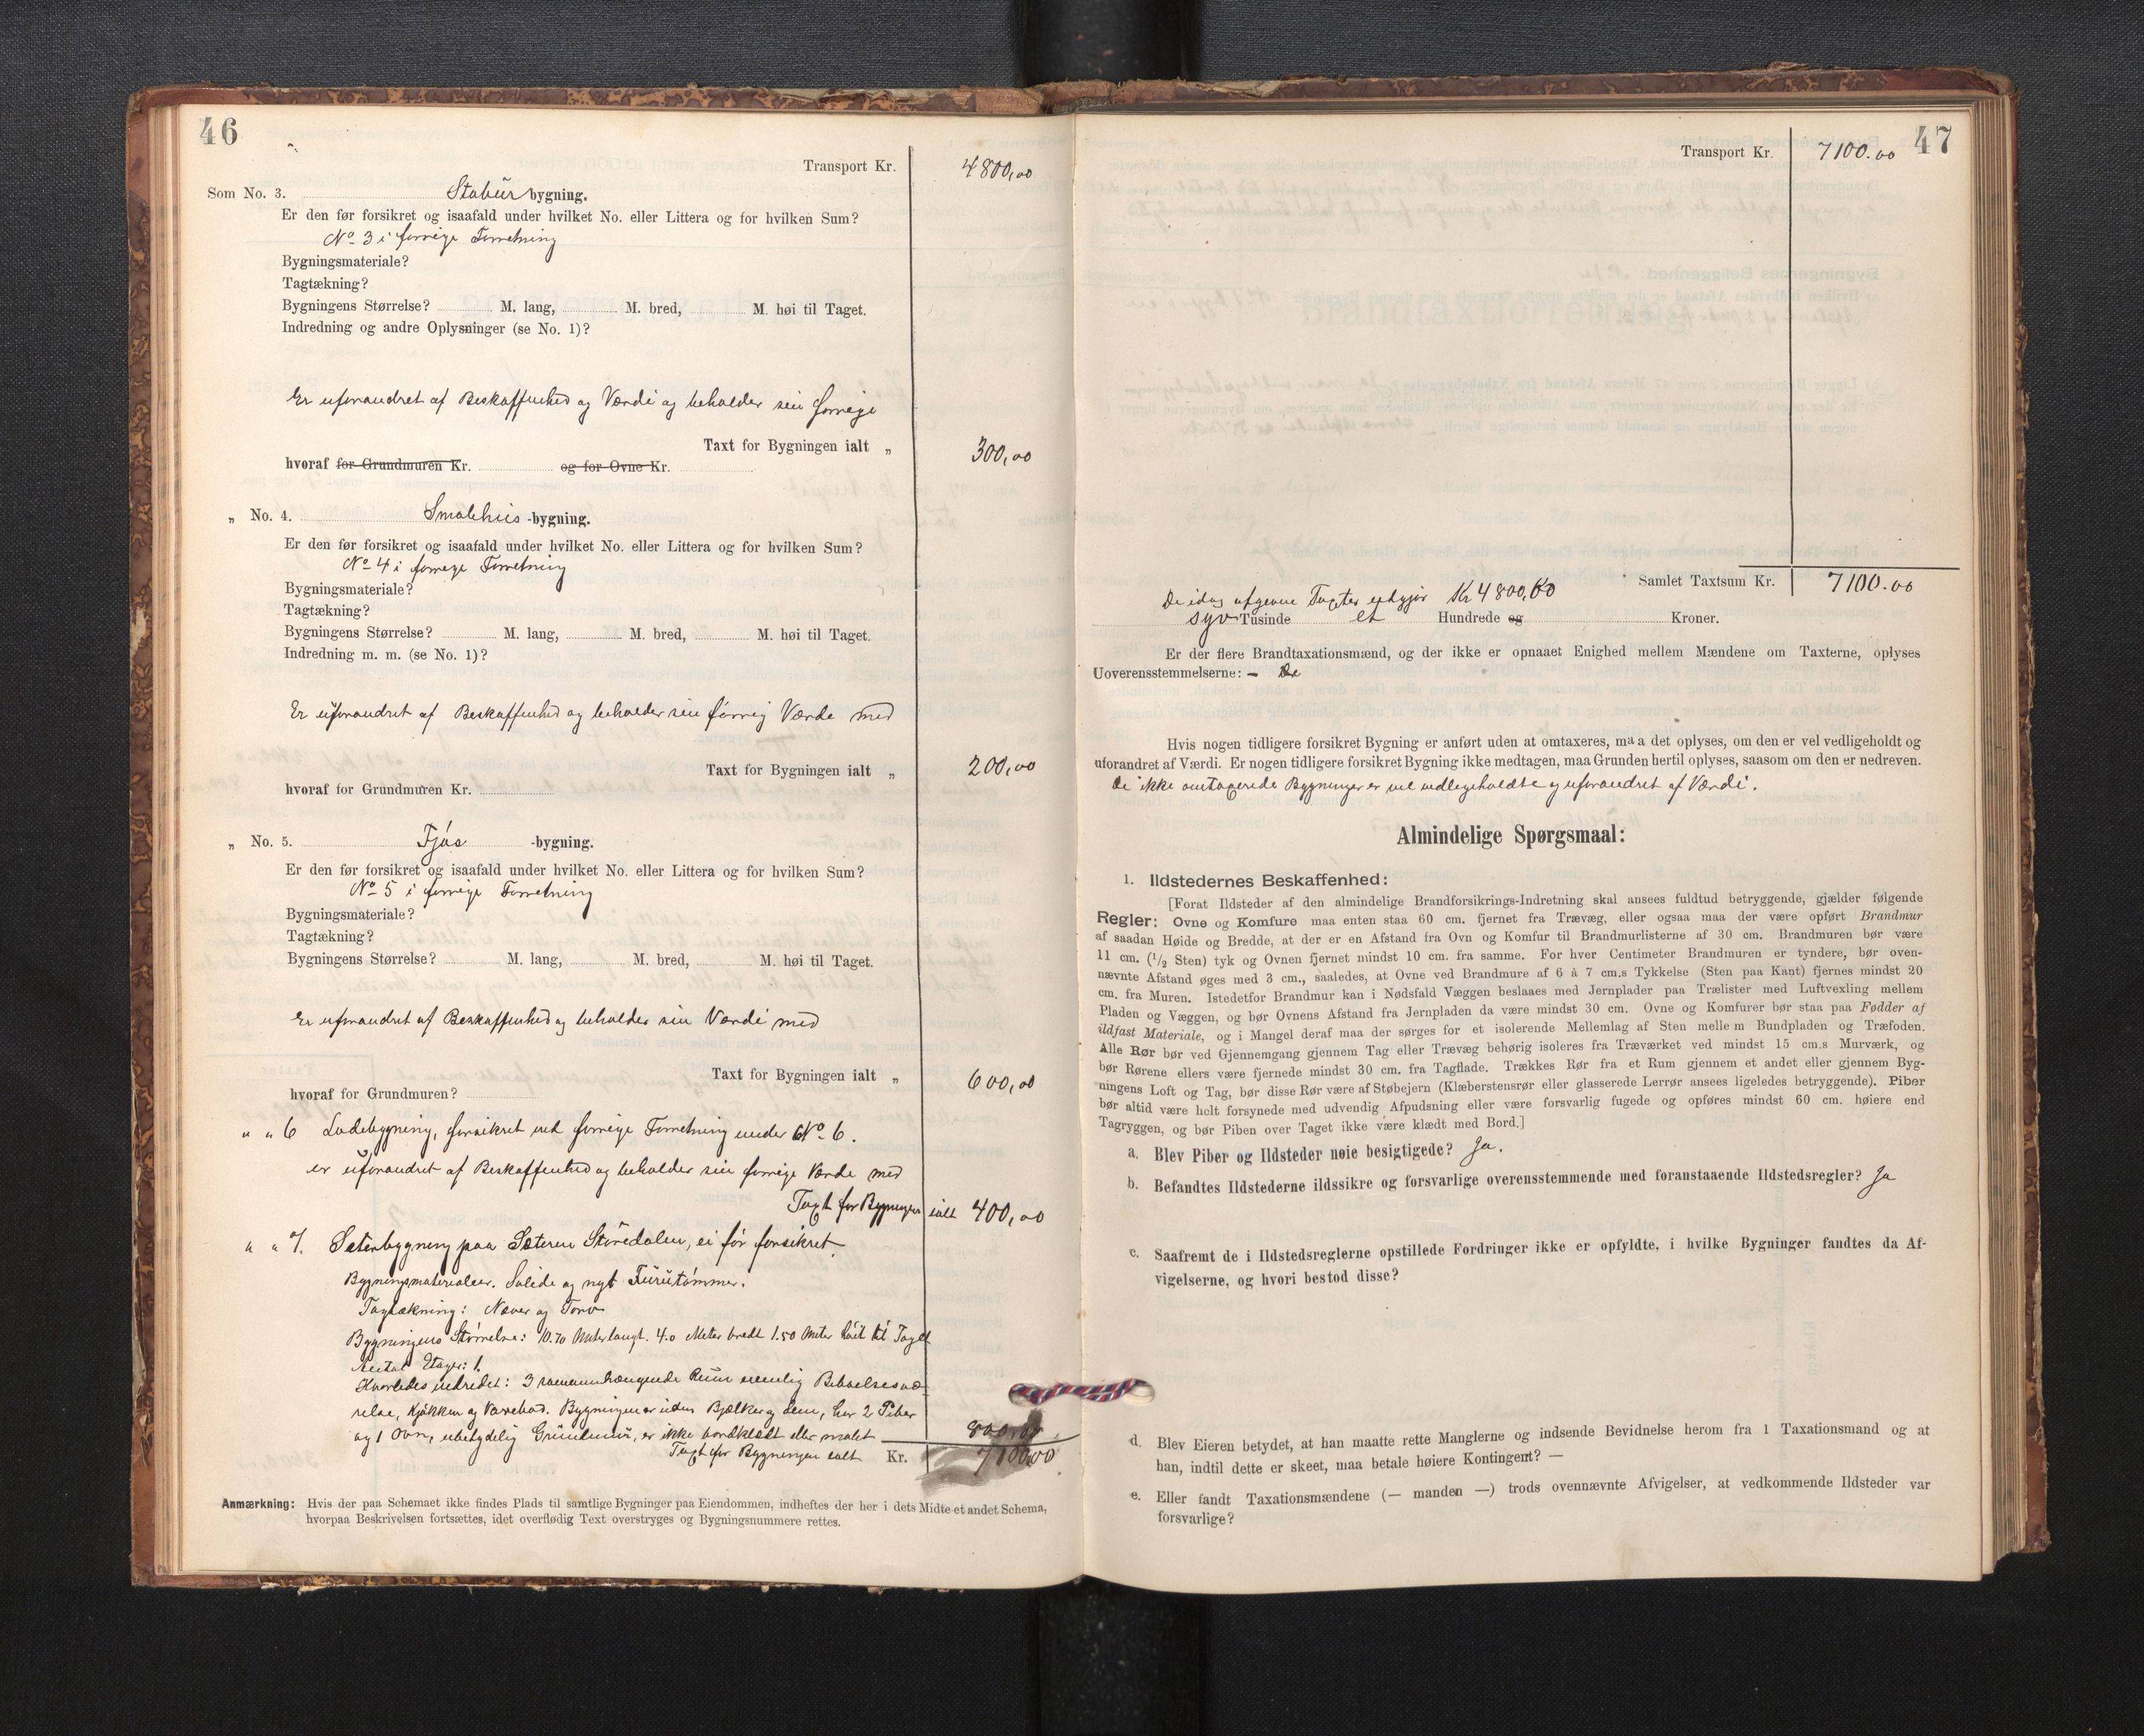 46
Transport Kr. 4800,00
Som No. 3. Stabur bygning.
Er den før forsikret og isaafald under hvilket No. eller Littera og for hvilken Sum?
No 3 i forrige Forretning
Bygningsmateriale?
Tagtækning?
Bygningens Størrelse? M. lang, M. bred, M. høi til Taget.
Indredning og andre Oplysninger (se No. 1)?
Er uforandret af Beskaffenhed og Værdi og beholder sin forrige
Taxt for Bygningen ialt „ 300,00
hvoraf for Grundmuren Kr. og for Ovne Kr.
„ No. 4. Smalehus -bygning.
Er den før forsikret og isaafald under hvilket No. eller Littera og for hvilken Sum?
No 4 i forrige Forretning
Bygningsmateriale?
Tagtækning?
Bygningens Størrelse? M. lang, M. bred, M. høi til Taget.
Indredning m. m. (se No. 1)?
Er uforandret af Beskaffenhed og beholder sin forrig Værde med
Taxt for Bygningen ialt „ 200,00
hvoraf for Grundmuren Kr.
„ No. 5. Fjøs -bygning.
Er den før forsikret og isaafald under hvilket No. eller Littera og for hvilken Sum?
No 5 i forrige Forretning
Bygningsmateriale?
Tagtækning?
Bygningens Størrelse? M. lang, M. bred, M. høi til Taget.
Er uforandret af Beskaffenhed og beholder sin Værdi med
Taxt for Bygningen ialt „ 600,00
hvoraf for Grundmuren?
„ „ 6 Ladebygning, forsikret ved forrige Forretning under No 6.
er uforandret af Beskaffenhed og beholder sin forrige Værde med
Taxt for Bygningen ialt 400,00
„ „ 7. Seterbygning paa Sæteren Støredalen, ei før forsikret
Bygningsmaterialier. Solide og nyt Furutømmer.
Tagtækning: Næver og Torv
Bygningens Størrelse: 10.70 Meter langt. 4.0 Meter bredt 1.50 Meter høit til Taget
Antal Etager: 1.
Hvorledes indredet: 3 sammenhængende Rum nemlig Beboelsesvæ-
relse, Kjøkken og Bygningen er uden Bjælker og dem, har 2 Piber
og 1 Ovn, ubetydelig Grundmur, er ikke bordklædt eller malet 800,00
Taxt for Bygningen ialt Kr. 7100,00
Anmærkning: Hvis der paa Schemaet ikke findes Plads til samtlige Bygninger paa Eiendommen, indheftes der her i dets Midte et andet Schema,
hvorpaa Beskrivelsen fortsættes, idet overflødig Text overstryges og Bygningsnummere rettes.
47
Transport Kr. 7100.00
Samlet Taxtsum Kr. 7100.00
De idag afgevne Taxter udgjør Kr 4800,00
syv Tusinde et Hundrede og Kroner.
Er der flere Brandtaxationsmænd, og der ikke er opnaaet Enighed mellem Mændene om Taxterne, oplyses
Uoverensstemmelserne: – De
Hvis nogen tidligere forsikret Bygning er anført uden at omtaxeres, maa det oplyses, om den er vel vedligeholdt og
uforandret af Værdi. Er nogen tidligere forsikret Bygning ikke medtagen, maa Grunden hertil oplyses, saasom om den er nedreven.
De ikke omtaxerede Bygninger er vel vedligeholdte og uforandret af Værdi.
Almindelige Spørgsmaal:
1. Ildstedernes Beskaffenhed:
[Forat Ildsteder af den almindelige Brandforsikrings-Indretning skal ansees fuldtud betryggende, gjælder følgende
Regler: Ovne og Komfure maa enten staa 60 cm. fjernet fra Trævæg, eller ogsaa maa der være opført Brandmur
af saadan Høide og Bredde, at der er en Afstand fra Ovn og Komfur til Brandmurlisterne af 30 cm. Brandmuren bør være
11 cm. (1/2 Sten) tyk og Ovnen fjernet mindst 10 cm. fra samme. For hver Centimeter Brandmuren er tyndere, bør oven-
nævnte Afstand øges med 3 cm., saaledes, at Ovne ved Brandmure af 6 à 7 cm.s Tykkelse (Sten paa Kant) fjernes mindst 20
cm. fra Muren. Istedetfor Brandmur kan i Nødsfald Væggen beslaaes med Jernplader paa Trælister med Luftvexling mellem
Pladen og Væggen, og bør Ovnens Afstand fra Jernpladen da være mindst 30 cm. Ovne og Komfurer bør staa paa Fødder af
ildfast Materiale, og i Mangel deraf maa der sørges for et isolerende Mellemlag af Sten mellem Bundpladen og Træfoden.
Alle Rør bør ved Gjennemgang gjennem Tag eller Trævæg behørig isoleres fra Træværket ved mindst 15 cm.s Murværk, og
bør Rørene ellers være fjernede mindst 30 cm. fra Tagflade. Trækkes Rør fra et Rum gjennem et andet eller gjennem Byg-
ningens Loft og Tag, bør disse Rør være af Støbejern (Klæberstensrør eller glasserede Lerrør ansees ligeledes betryggende). Piber
bør altid være helt forsynede med udvendig Afpudsning eller være forsvarlig fugede og opføres mindst 60 cm. høiere end
Tagryggen, og bør Piben over Taget ikke være klædt med Bord.]
a. Blev Piber og Ildsteder nøie besigtigede? Ja.
b. Befandtes Ildstederne ildssikre og forsvarlige overensstemmende med foranstaaende Ildstedsregler? Ja
c. Saafremt de i Ildstedsreglerne opstillede Fordringer ikke er opfyldte, i hvilke Bygninger fandtes da Af-
vigelserne, og hvori bestod disse?
d. Blev Eieren betydet, at han maatte rette Manglerne og indsende Bevidnelse herom fra 1 Taxationsmand og at
han, indtil dette er skeet, maa betale høiere Kontingent? —
e. Eller fandt Taxationsmændene (— manden —) trods ovennævnte Afvigelser, at vedkommende Ildsteder var
forsvarlige?